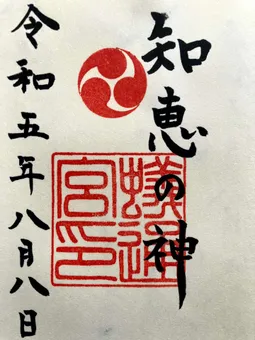 知恵の神
蟻通
宮印
令和五年八月八日